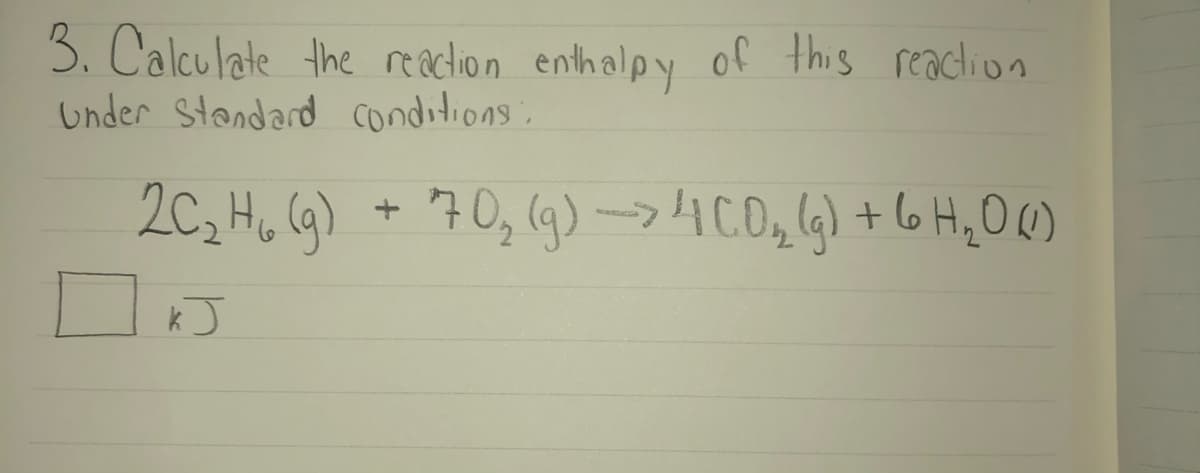 3. Calculate the reaction enthalpy of this reaction
under standard conditions:
2C₂H₆(g) + 7O₂(g) —> 4CO₂(g) + 6H₂O(l)
☐ kJ